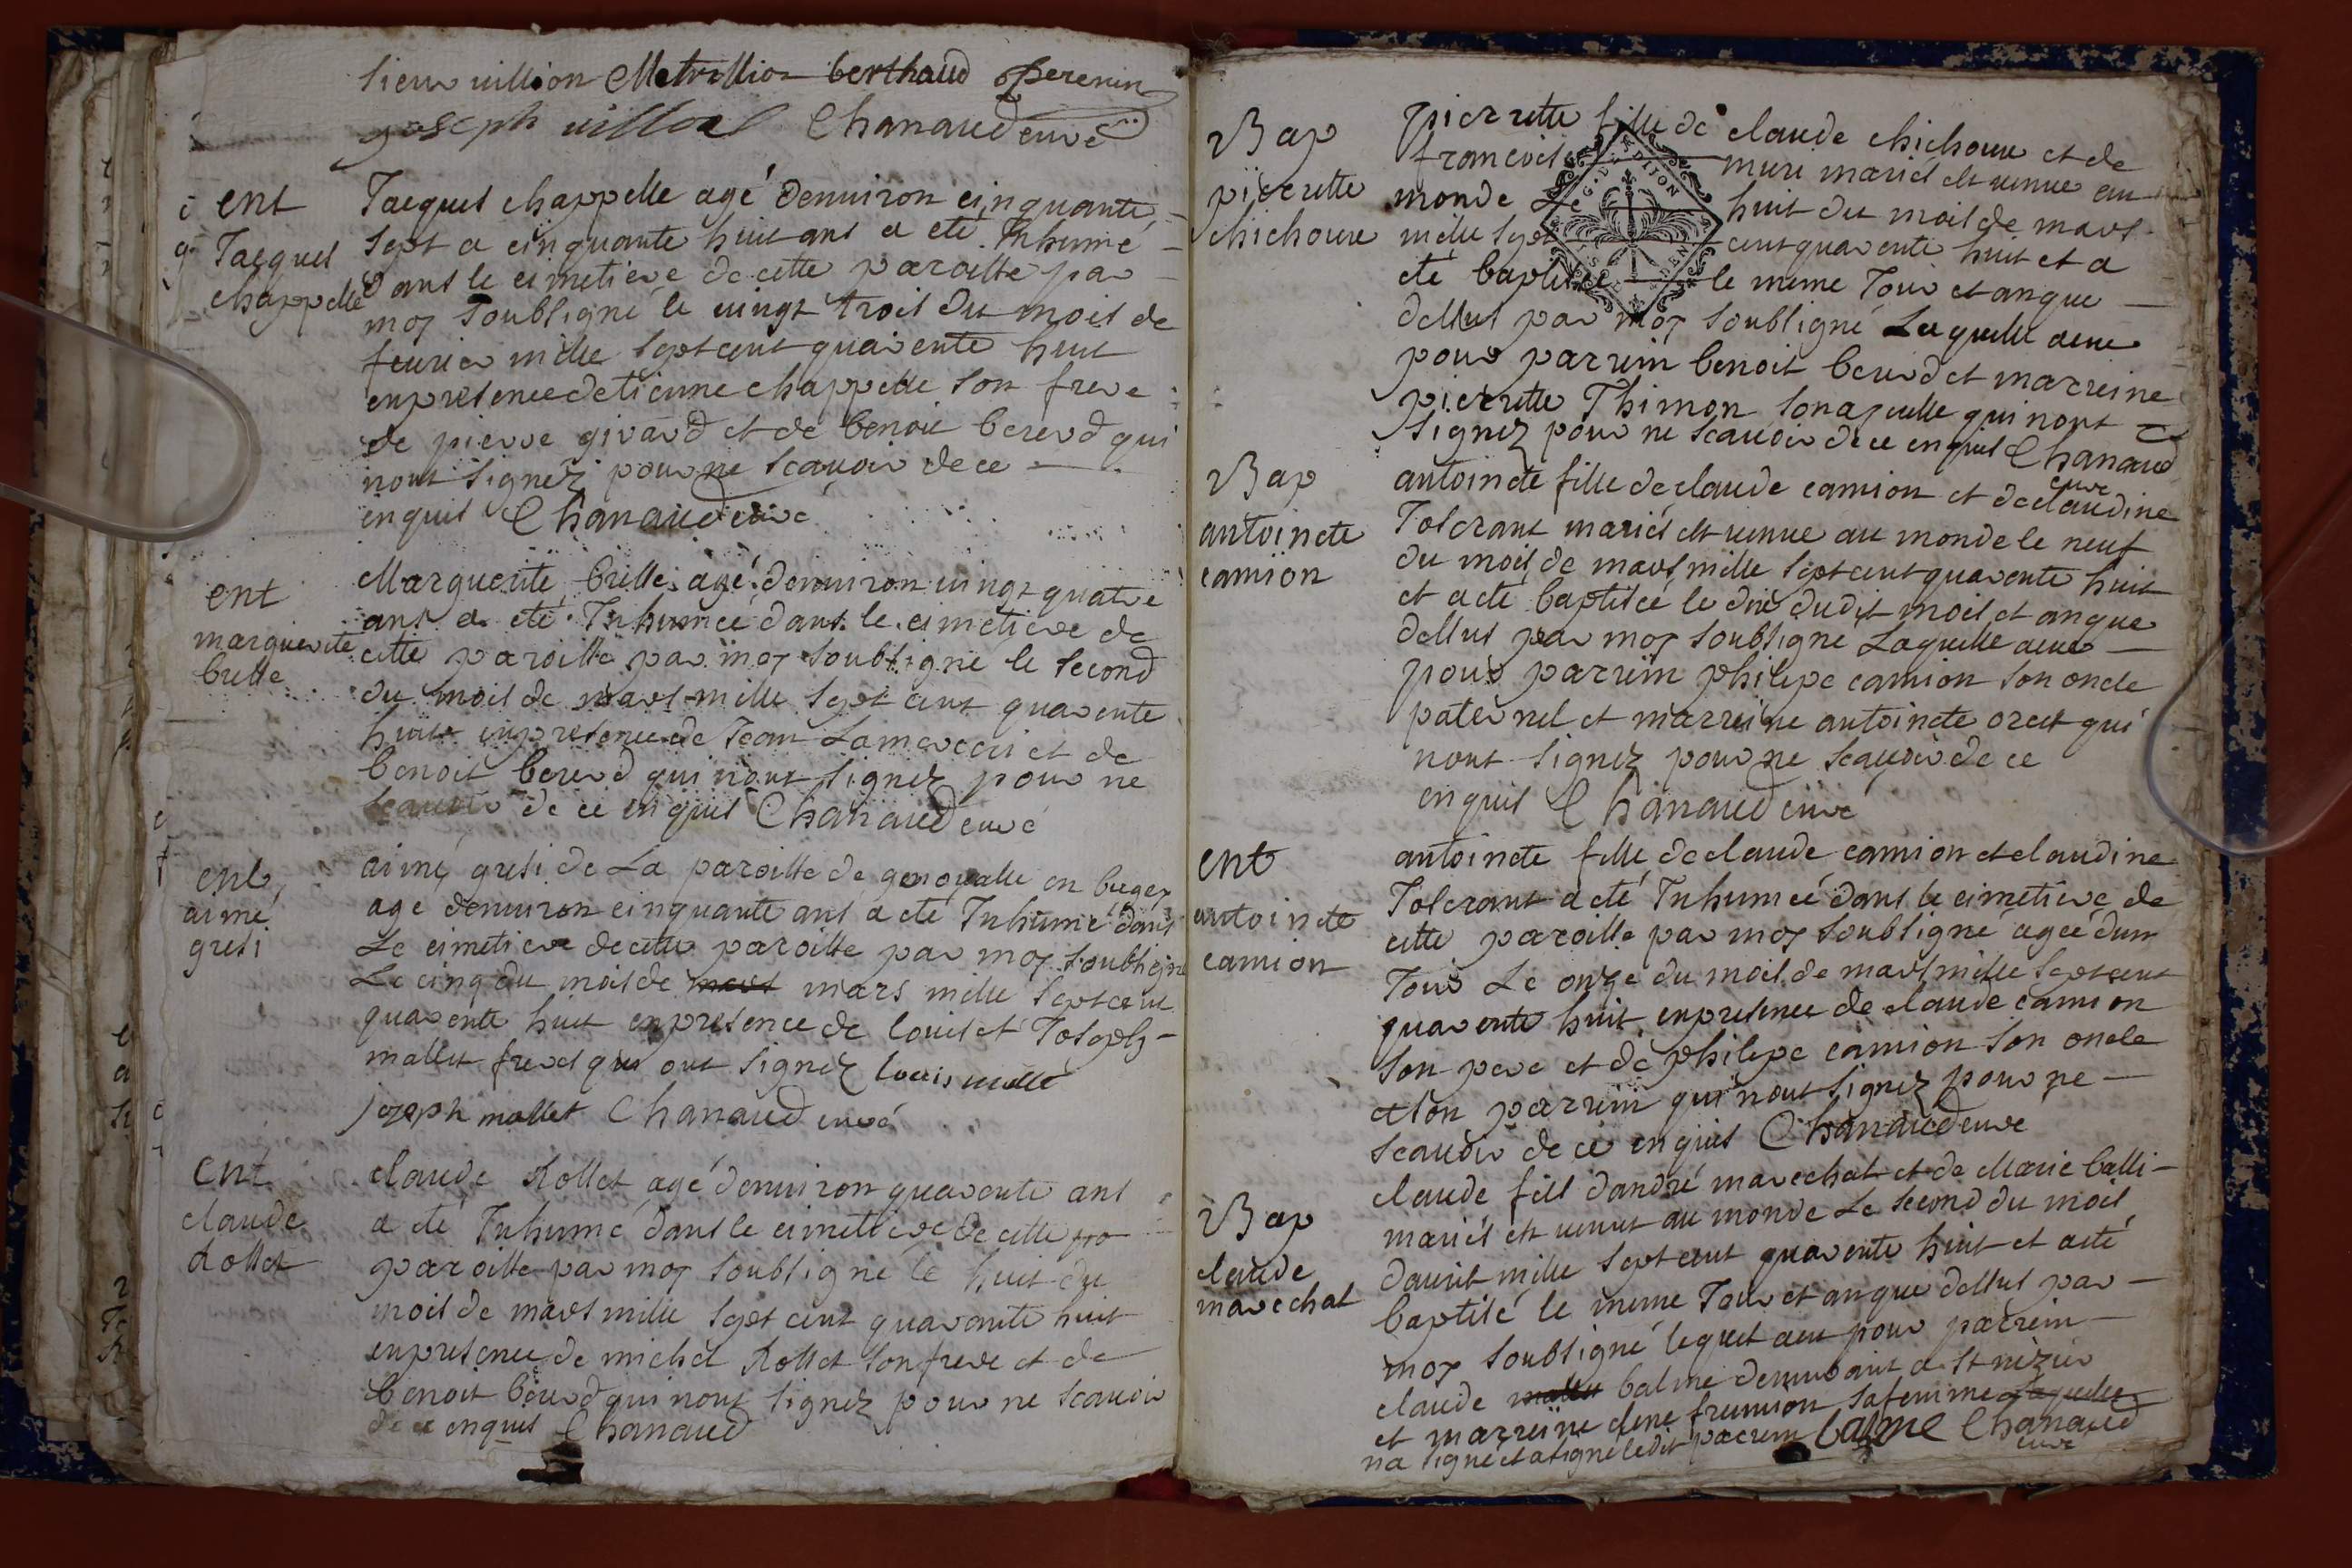 Sieur villion Metrillion berthaud Perenin
joseph villon Chanaud curé
ent
Jacques
chappelle
Jacques chappelle agé denuiron cinquante
sept a cinquante huit ans a eté Inhumé
dans le cimetiere de cette paroisse par
moy soubsigné le vingt trois du mois de
feurier mille sept cent quarente huit
enpresence detienne chappelle son frere
de pierre girard et de benoit bererd qui
nont signez pour ne scauoir de ce
enquis Chanaud curé
ent
marguerite
brette
Marguerite brette agé denuiron vingt quatre
ans a eté Inhumeé dans le cimetiere de
cette paroisse par moy soubsigné le second
du mois de mars mille sept cent quarente
huit enpresence de Jean Lamercerii et de
benoit bererd qui nont signez pour ne
scauoir de ce enquis Chanaud curé
ent
aimé
gresi
aimé gresi de La paroisse de genouallee en bugey
age denuiron cinquante ans a eté Inhumé dans
Le cimetiere decette paroisse par moy soubsigné
Le cinq du mois de mars mars mille sept cent
quarente huit enpresence de louis et Joseph
mallet freres qui ont signez louis mallet
joseph mallet Chanaud curé
ent
claude
Rollet
claude Rollet agé denuiron quarente ans
a eté Inhumé dans le cimetiere de cette pa
paroisse par moy soubsigné le huit du
mois de mars mille sept cent quarente huit
enpresence de michel Rollet son frere et de
benoit bererd qui nont signez pour ne scauoir
de ce enquis Chanaud
Bap
pierrette
chichoux
G.D. LA DIJON
pierrette fille de claude chichoux et de
francoise muri mariés est venue au
monde Le huit du mois de mars
mille sept cent quarente huit et a
eté baptisée le meme Jour et anque
dessus par moy soubsigné Laquelle aeue
pour parrein benoit bererd et marreine
pierrette Thimon sonayeulle qui nont
signez pour ne scauoir de ce enquis Chanaud
curé
Bap
antoinete
camion
antoinete fille de claude camion et de claudine
Tolerant mariés est venue au monde le neuf
du mois de mars mille sept cent quarente huit
et aeté baptisée le dix dudit mois et anque
dessus par moy soubsigné Laquelle aeue
pour parrein philipe camion son oncle
paternel et marreine antoinete orcet qui
nont signez pour ne scauoir de ce
enquis Chanaud curé
ent
antoinete
camion
antoinete fille de claude camion et claudine
Tolerant aeté Inhumeé dans le cimetiere de
cette paroisse par moy soubsigné ageé dun
Jour Le onze du mois de mars mille sept cent
quarente huit enpresence de claude camion
son pere et de philipe camion son oncle
et son parrein qui nont signez pour ne
scauoir de ce enquis Chanaud curé
Bap
claude
marechal
claude fils dandré marechal et de Marie balli
mariés est venut au monde Le second du mois
dauril mille sept cent quarente huit et aeté
baptisé le meme Jour et anque dessus par
moy soubsigné lequel aeu pour parrein
claude mallet balme demeurant a St nizier
et marreine clere freunion sa femme Laquelle
na signé et a signé ledit parrein balme Chanaud
curé